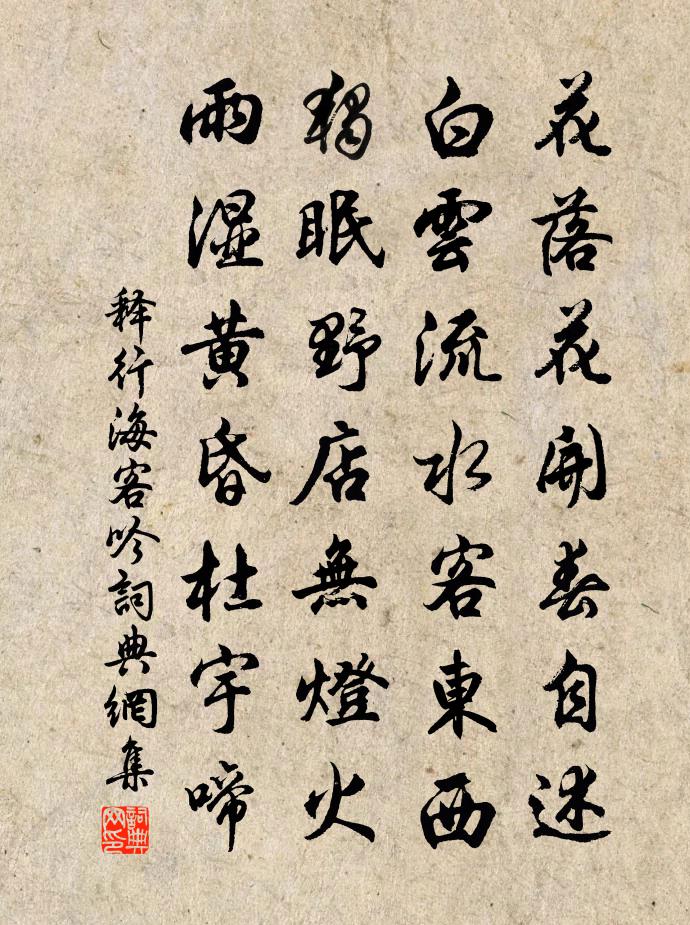 花落花開春自迷
白雲流水客東西
獨眠野店無燈火
雨濕黃昏杜宇啼
释行海客吟詞典網集
詞典
网印